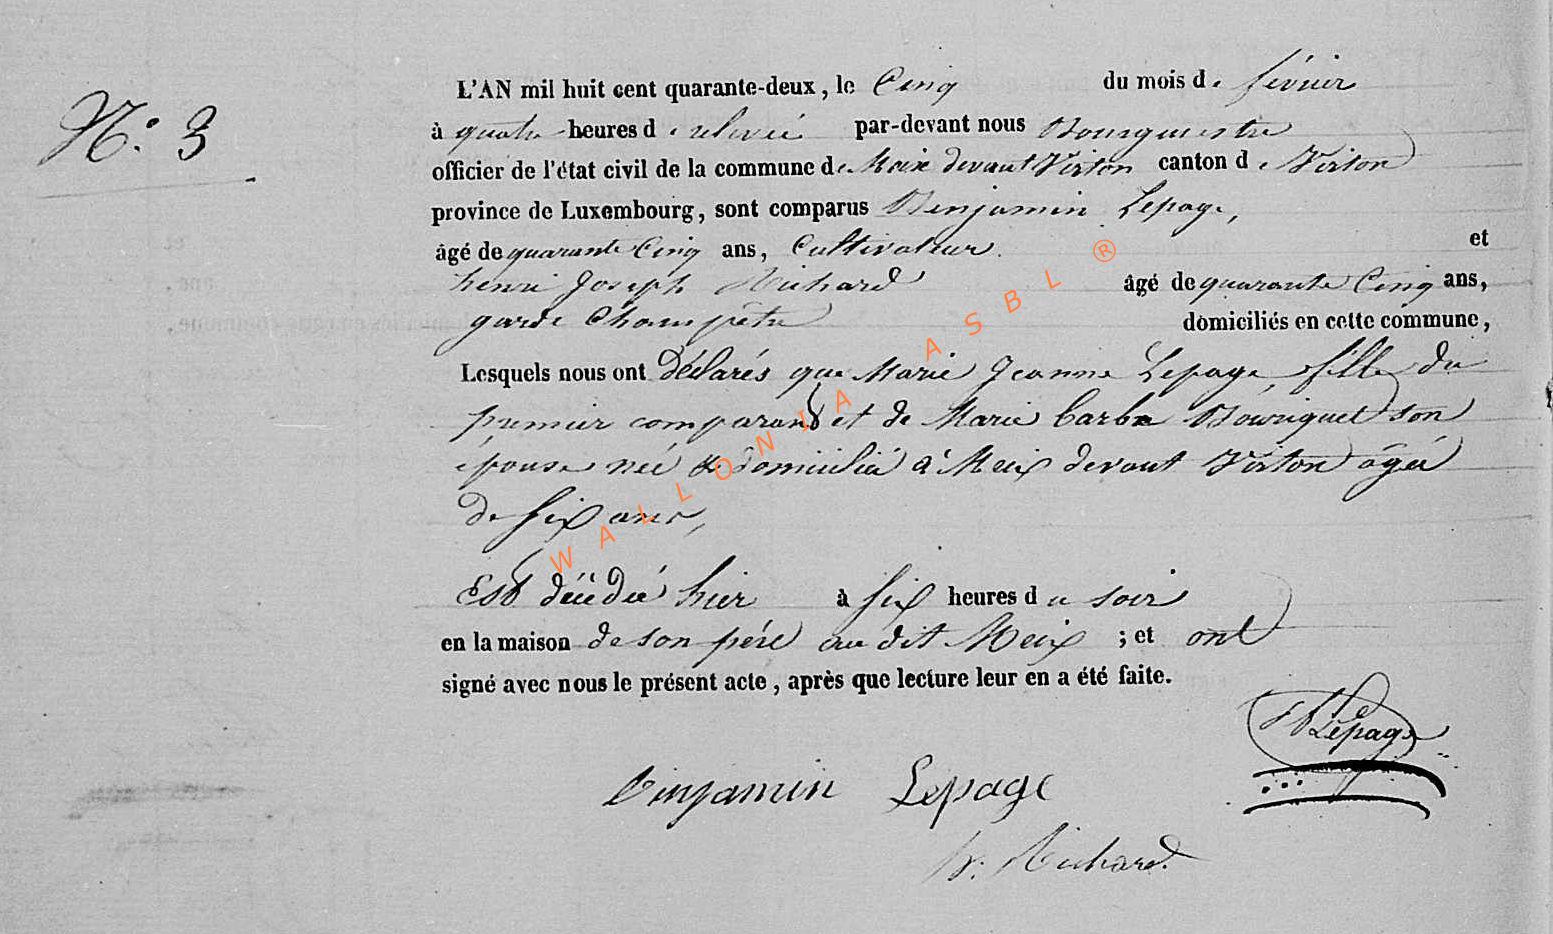 N.° 3
L'AN mil huit cent quarante-deux, le Cinq du mois de février
à quatre heures de relevée par-devant nous Bourgmestre
officier de l'état civil de la commune de Meix devant Virton canton de Virton
province de Luxembourg, sont comparus Benjamin Lepage,
âgé de quarante Cinq ans, Cultivateur. et
henri Joseph Richard âgé de quarante Cinq ans,
garde Champêtre domiciliés en cette commune,
Lesquels nous ont Déclarés que Marie Jeanne Lepage, fille du
premier comparant et de Marie barbe Bouriguet son
épouse née & domiciliée à Meix devant Virton âgée
de six ans,
Est décédée hier à six heures du soir
en la maison de son père au dit Meix ; et ont
signé avec nous le présent acte, après que lecture leur en a été faite.
Lepage
Benjamin Lepage
h. Richard.
WALLONIA ASBL ®